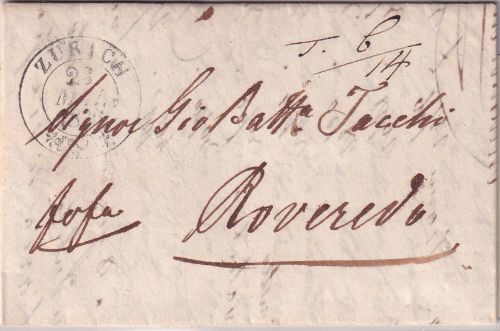 ZURICH
23
6/14
Signor Gio Batta Tacchi
Roveredo